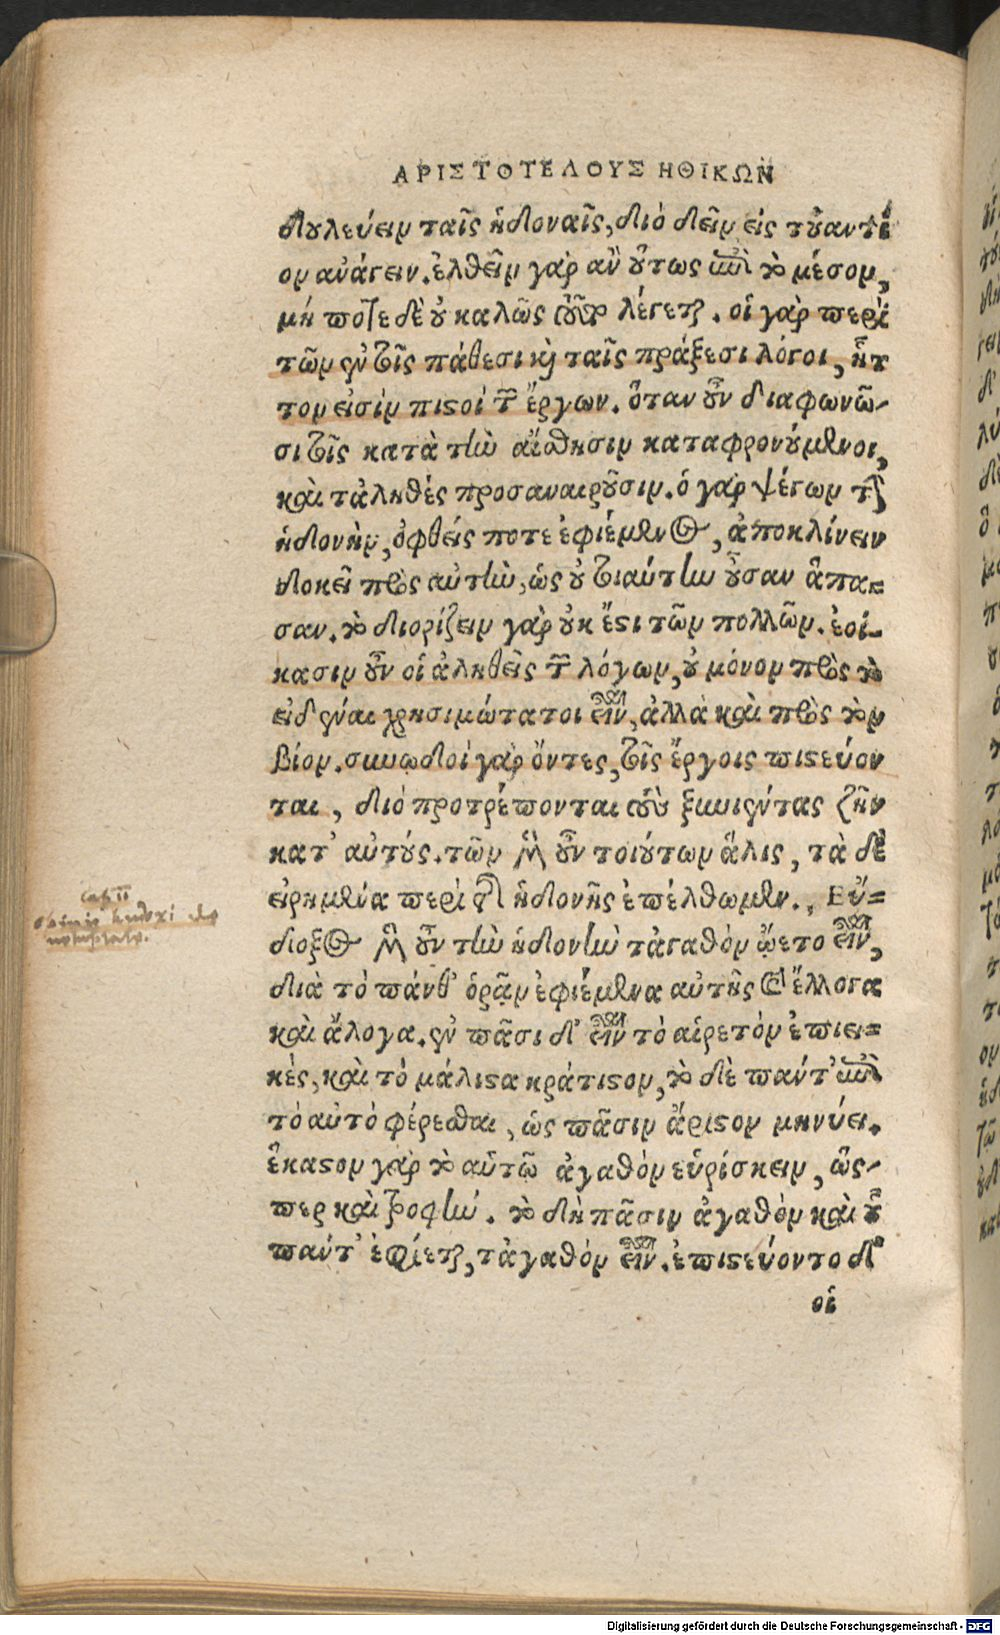 ΑΡΙΣΤΟΤΕΛΟΥΣ ΗΘΙΚΩΝ
δουλεύειν ταῖς ἡδοναῖς, διὸ δεῖν εἰς τοὐαντί
ον ἀνάγειν. ἐλθεῖν γὰρ ἂν οὕτως ἐπὶ τὸ μέσον,
μή ποτε δὲ οὐ καλῶς τοῦτο λέγεται. οἱ γὰρ περὶ
τῶν ἐν τοῖς πάθεσι καὶ ταῖς πράξεσι λόγοι, ἧτ
τον εἰσὶν πιστοὶ τῶν ἔργων. ὅταν οὖν διαφωνῶ-
σι τοῖς κατὰ τὴν αἴσθησιν καταφρονούμενοι,
καὶ τἀληθὲς προσαναιροῦσιν. ὁ γὰρ ψέγων τὴν
ἡδονὴν, ὀφθείς ποτε ἐφιέμενος, ἀποκλίνειν
δοκεῖ πρὸς αὐτὴν, ὡς οὐ τοιαύτην οὖσαν ἅπα=
σαν. τὸ διορίζειν γὰρ οὐκ ἔστι τῶν πολλῶν. ἐοί-
κασιν οὖν οἱ ἀληθεῖς τῶν λόγων, οὐ μόνον πρὸς τὸ
εἰδέναι χρησιμώτατοι εἶναι, ἀλλὰ καὶ πρὸς τὸν
βίον. συνῳδοὶ γὰρ ὄντες, τοῖς ἔργοις πιστεύον
ται, διὸ προτρέπονται τοὺς ξυνιέντας ζῆν
κατ' αὐτούς. τῶν μὲν οὖν τοιούτων ἅλις, τὰ δὲ
εἰρημένα περὶ τῆς ἡδονῆς ἐπέλθωμεν. Εὔ=
διοξος μὲν οὖν τὴν ἡδονὴν τἀγαθὸν ᾤετο εἶναι,
διὰ τὸ πάνθ' ὁρᾷν ἐφιέμενα αὐτῆς καὶ ἔλλογα
καὶ ἄλογα. ἐν πᾶσι δ' εἶναι τὸ αἱρετὸν ἐπιει=
κὲς, καὶ τὸ μάλιστα κράτιστον, τὸ δὲ πάντ' ἐπὶ
τὸ αὐτὸ φέρεσθαι, ὡς πᾶσιν ἄριστον μηνύει.
ἕκαστον γὰρ τὸ αὑτῷ ἀγαθὸν εὑρίσκειν, ὥς-
περ καὶ τροφήν. τὸ δὴ πᾶσιν ἀγαθὸν καὶ οὗ
πάντ' ἐφίεται, τἀγαθὸν εἶναι. ἐπιστεύοντο δ'
οἱ
cap II